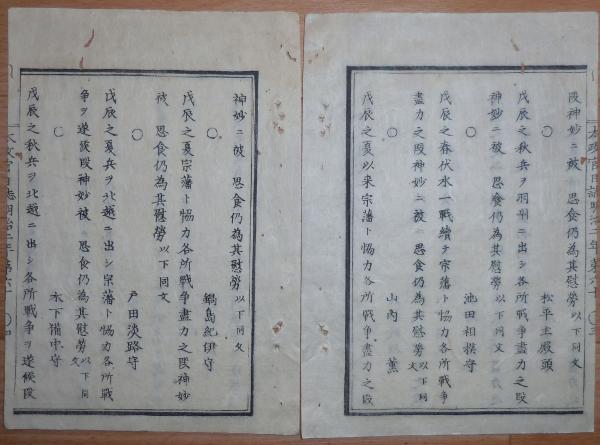 太政官日誌明治二年 第六十
段神妙ニ被 思食仍為其慰勞 以下同文
○ 松平主殿頭
戊辰之秋兵ヲ羽州ニ出シ各所戰争盡力之段
神妙ニ被 思食仍為其慰勞 以下同文
○ 池田相摸守
戊辰之春伏水一戰續テ宗藩ト恊力各所戰争
盡力之段神妙ニ被 思食仍為其慰勞 以下同文
○ 山内 薫
戊辰之夏以来宗藩ト恊力各所戰争盡力之段
神妙ニ被 思食仍為其慰勞 以下同文
○ 鍋島紀伊守
戊辰之夏宗藩ト恊力各所戰争盡力之段神妙
被 思食仍為其慰勞 以下同文
○ 戸田淡路守
戊辰之夏兵ヲ北越ニ出シ宗藩ト恊力各所戰
争ヲ遂候段神妙被 思食仍為其慰勞 以下同文
○ 木下備中守
戊辰之秋兵ヲ北越ニ出シ各所戰争ヲ遂候段